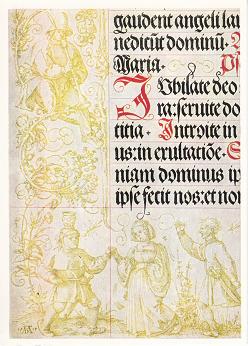 gaudent angeli lau
nedicūt dominū.
Maria.
IVbilate deo
ra: seruite do
titia. Introite in
us: in exultatiōe. S
niam dominus ip
ipse fecit nos: et no